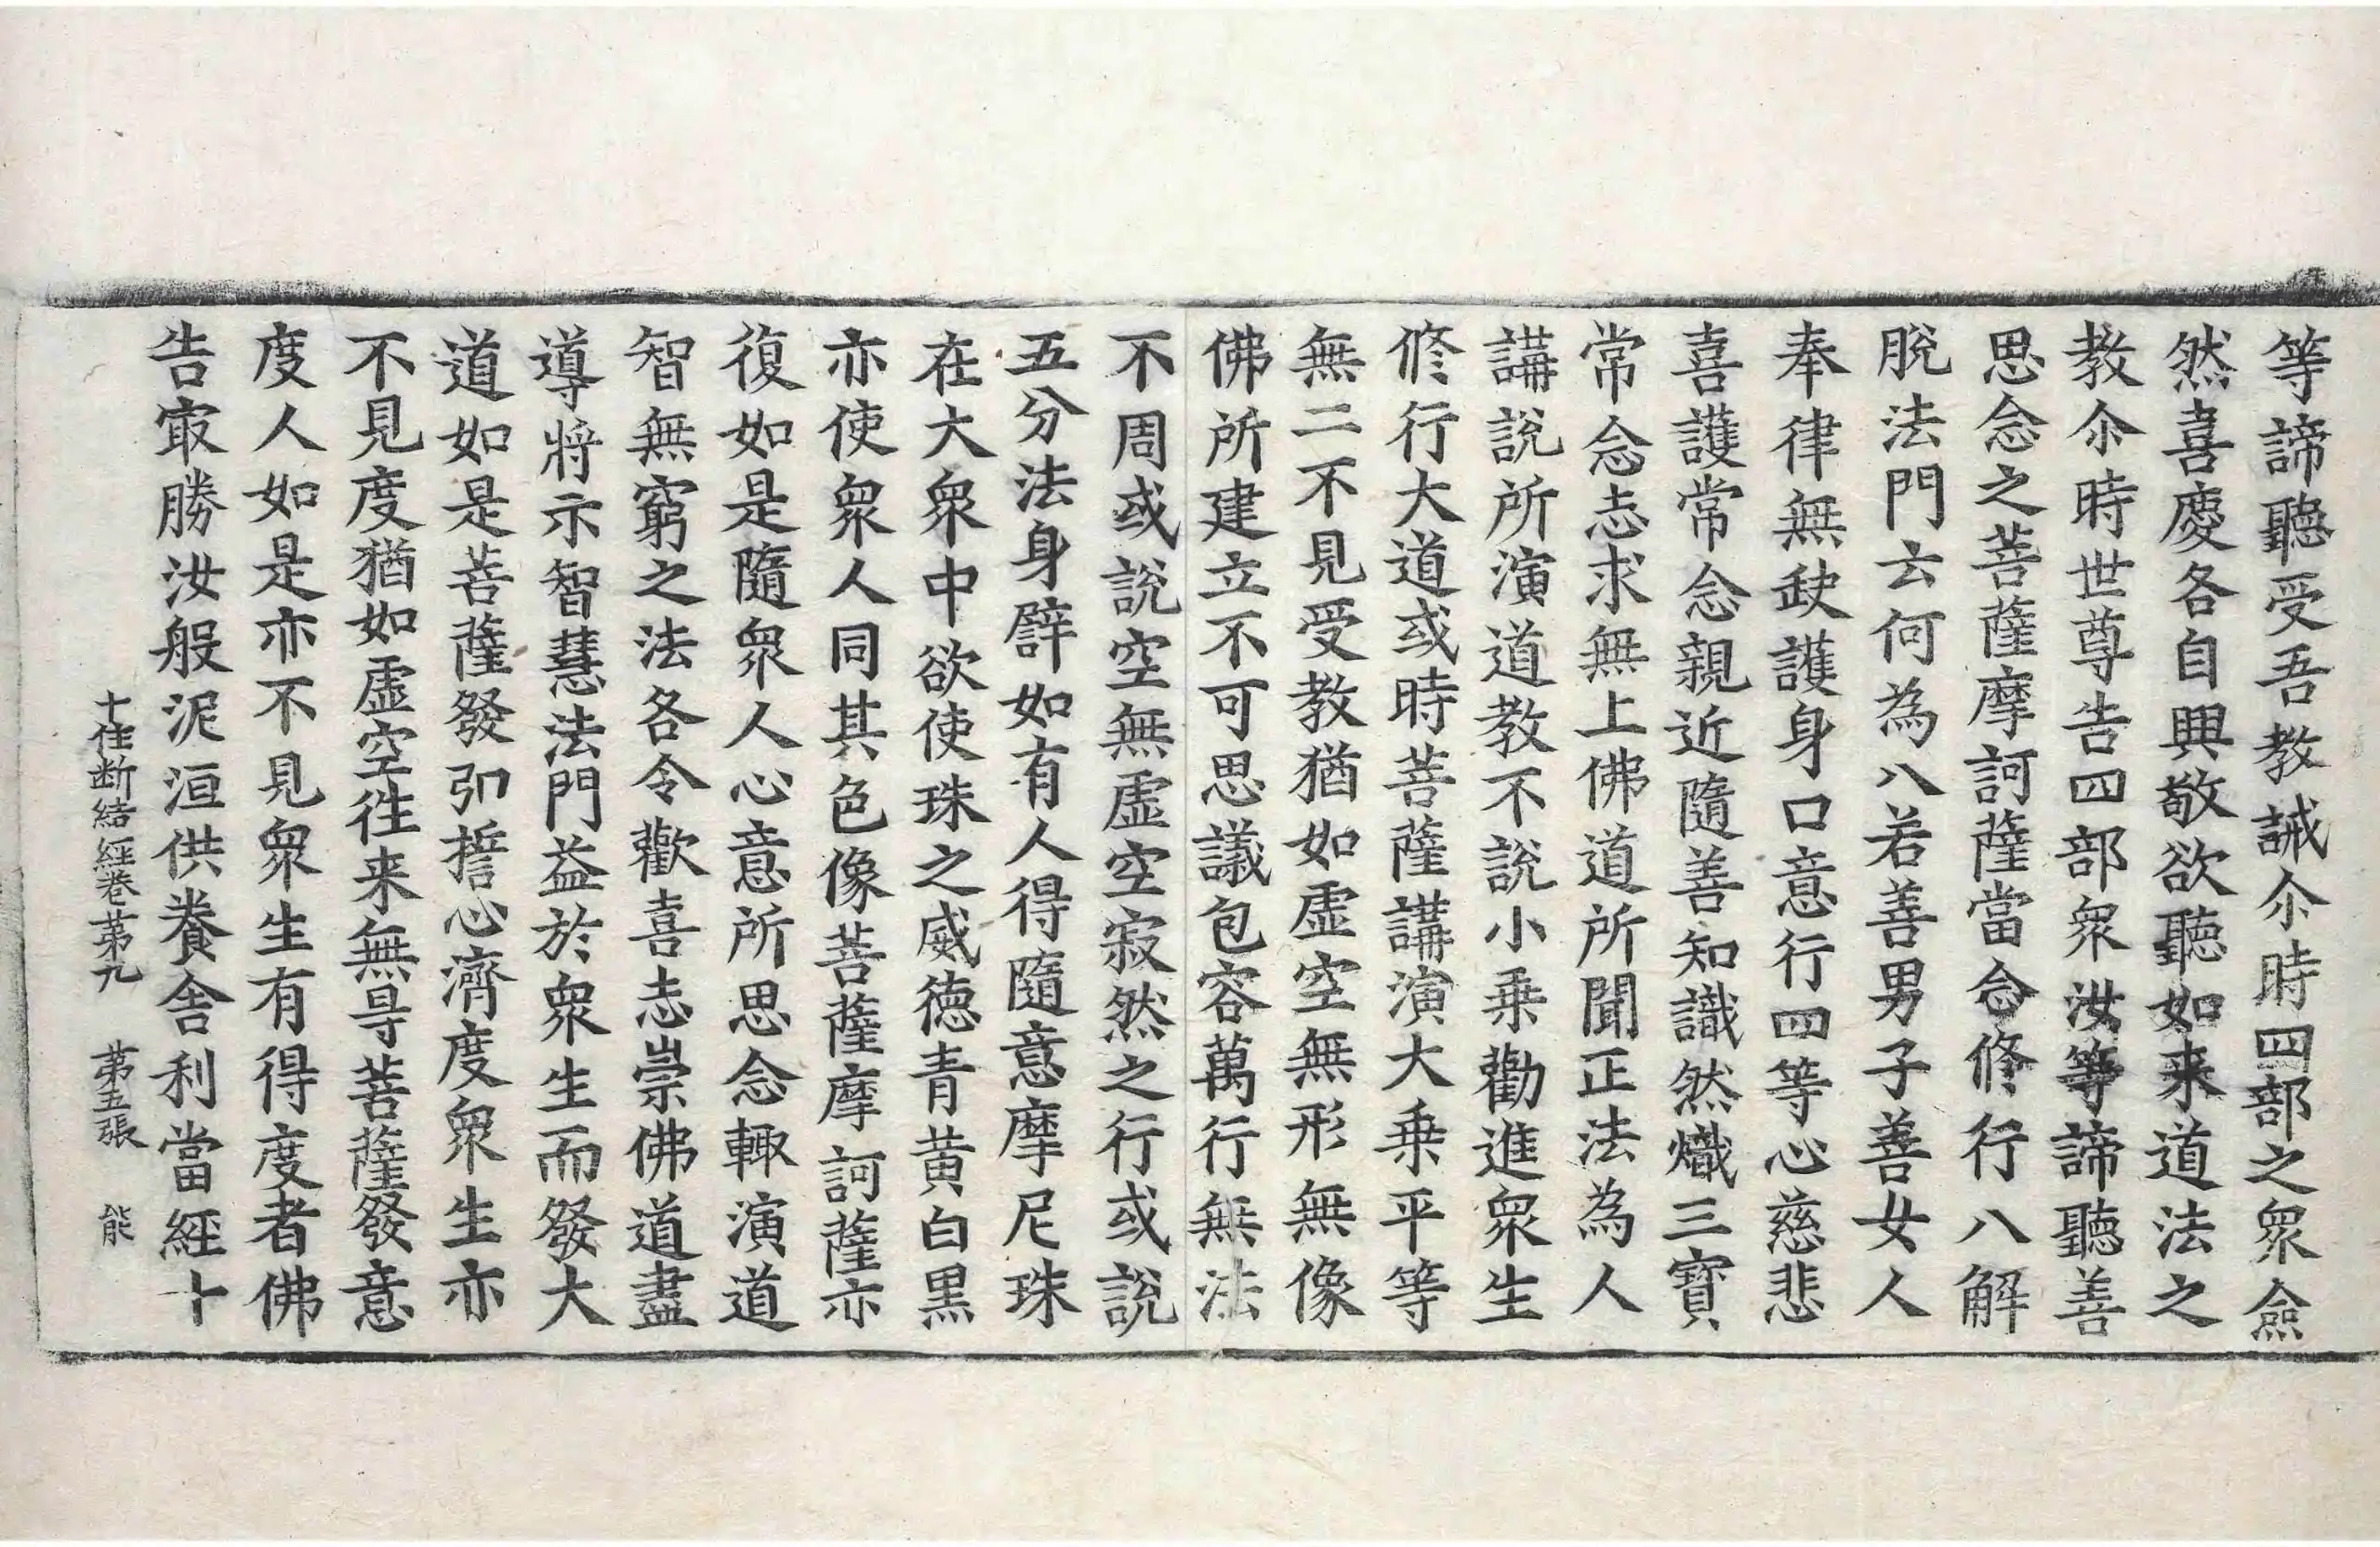 等諦聽受吾教誡尒時四部之衆僉
然喜慶各自興敬欲聽如来道法之
教尒時世尊告四部衆汝等諦聽善
思念之菩薩摩訶薩當念修行八解
脫法門云何為八若善男子善女人
奉律無缺護身口意行四等心慈悲
喜護常念親近隨善知識然熾三寶
常念志求無上佛道所聞正法為人
講說所演道教不說小乗勸進衆生
修行大道或時菩薩講演大乗平等
無二不見受教猶如虛空無形無像
佛所建立不可思議包容萬行無法
不周或說空無虛空寂然之行或說
五分法身辟如有人得隨意摩尼珠
在大衆中欲使珠之威德青黃白黒
亦使衆人同其色像菩薩摩訶薩亦
復如是隨衆人心意所思念輙演道
智無窮之法各令歡喜志崇佛道盡
導將示智慧法門益於衆生而發大
道如是菩薩發弘誓心濟度衆生亦
不見度猶如虛空徃来無㝵菩薩發意
度人如是亦不見衆生有得度者佛
告㝡勝汝般泥洹供養舍利當經十
十住断結經卷苐九 苐五張 能